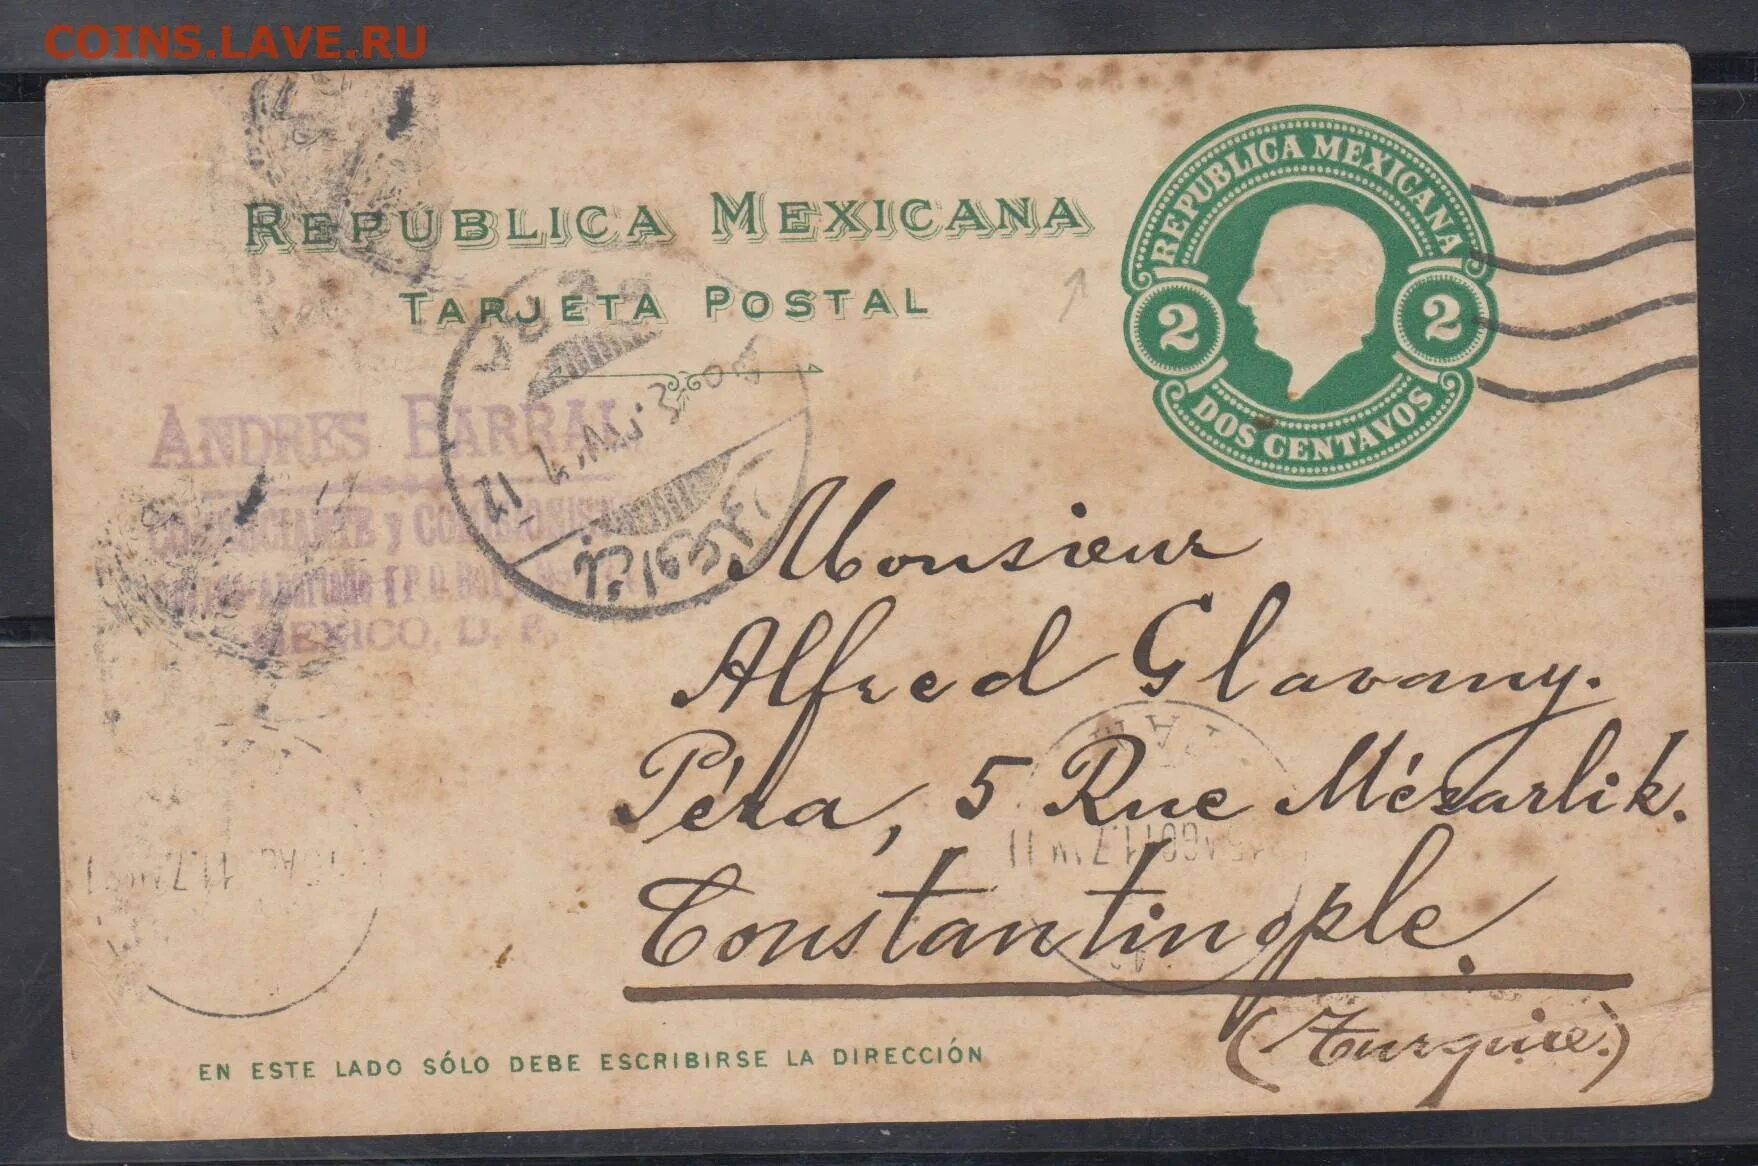 COINS.LAVE.RU
REPUBLICA MEXICANA
TARJETA POSTAL
REPUBLICA MEXICANA
2 2
DOS CENTAVOS
ANDRES BARRAL
COMERCIANTE y COMISIONISTA
MEXICO, D. F.
Monsieur
Alfred Glavany.
Péra, 5 Rue Mézarlik.
Constantinople.
(Turquie.)
EN ESTE LADO SÓLO DEBE ESCRIBIRSE LA DIRECCIÓN